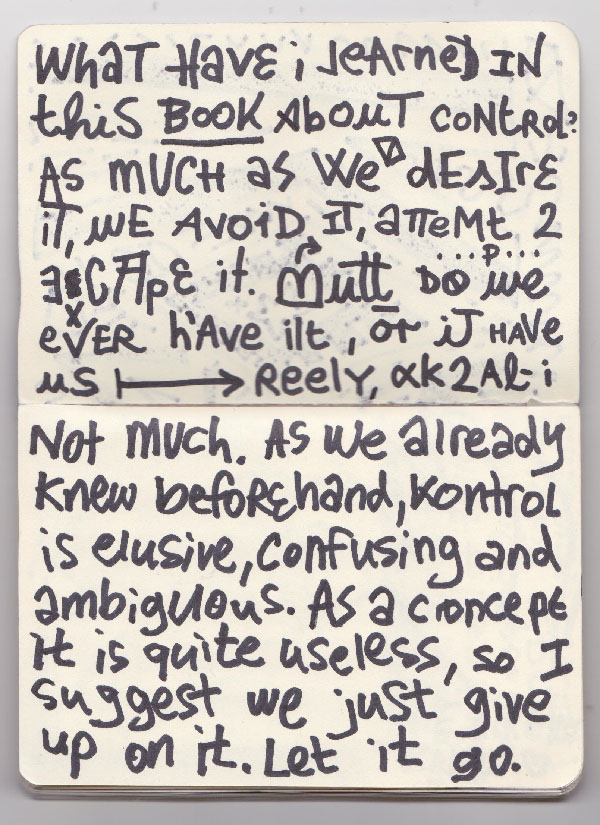 WHaT HAVE i leArneD IN
thiS BOOK AbouT CoNtRoL?
AS mUCH aS We dEsIrE
iT, WE AVOiD IT, aTTeMt 2
ƎSCApE it. Mutt ...P... DO we
eVER hAve ilt, or iT HAVe
uS ⟼ ReelY, αk2Al-i
Not much. As we already
knew beforehand, kontrol
is elusive, confusing and
ambiguous. As a concept
it is quite useless, so I
suggest we just give
up on it. Let it go.